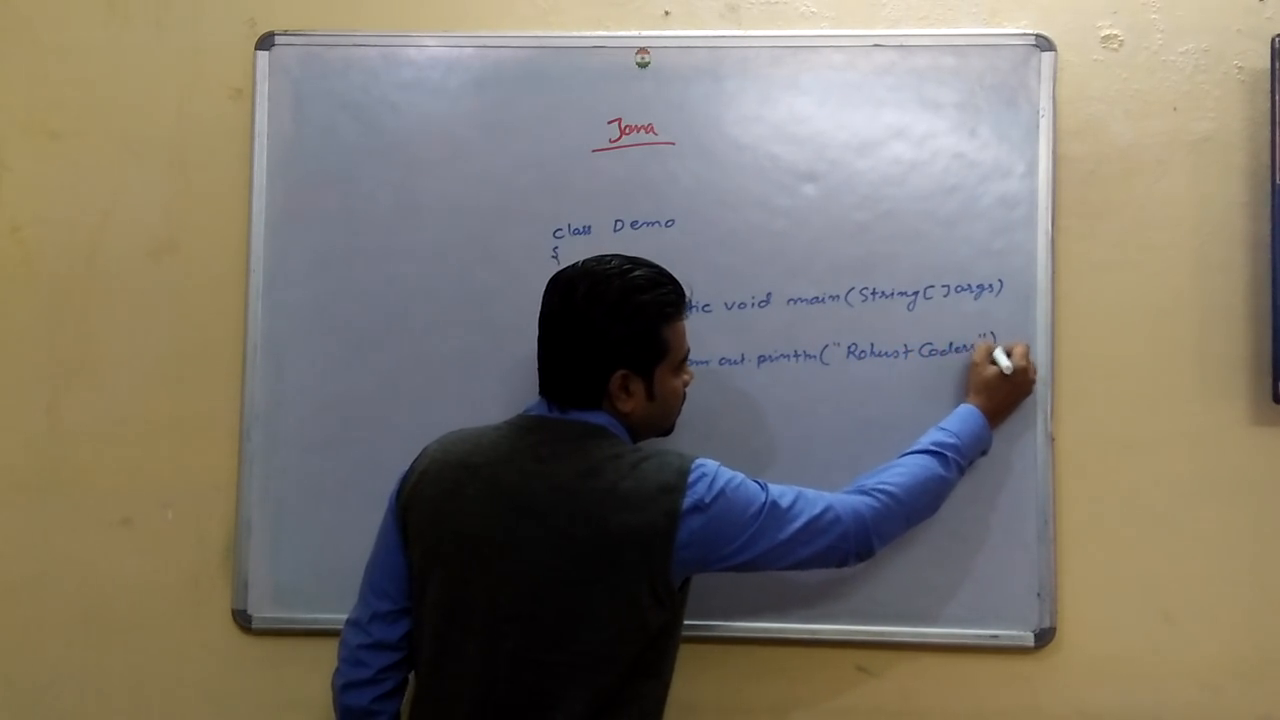 Java
class Demo
{
tic void main(String[]args)
em out.println("Robust Coders")